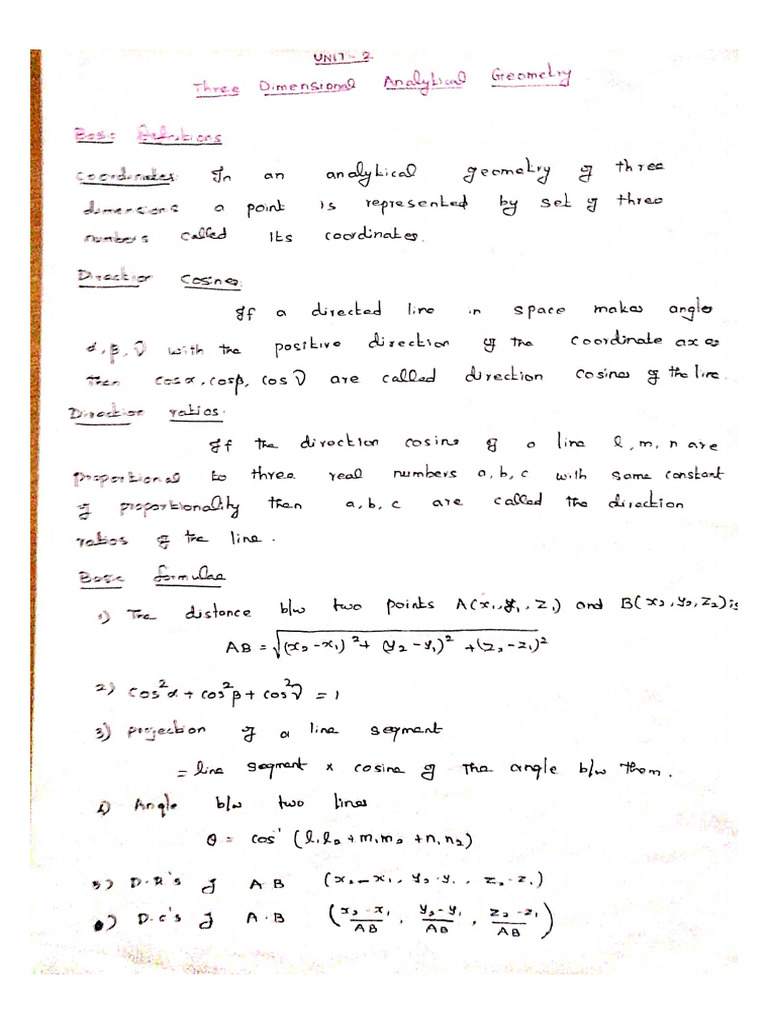 UNIT-2
Three Dimensional Analytical Geometry
Basic Definitions
Coordinates: In an analytical geometry of three
dimensions a point is represented by set of three
numbers called its coordinates.
Direction Cosines:
If a directed line in space makes angles
α, β, γ with the positive direction of the coordinate axes
then cosα, cosβ, cosγ are called direction cosines of the line.
Direction ratios:
If the direction cosine of a line l, m, n are
proportional to three real numbers a, b, c with same constant
of proportionality then a, b, c are called the direction
ratios of the line.
Basic formulae
1) The distance b/w two points A(x₁, y₁, z₁) and B(x₂, y₂, z₂) is
AB = √((x₂-x₁)² + (y₂-y₁)² + (z₂-z₁)²)
2) cos²α + cos²β + cos²γ = 1
3) projection of a line segment
= line segment × cosine of the angle b/w them.
4) Angle b/w two lines
θ = cos⁻¹ (l₁l₂ + m₁m₂ + n₁n₂)
5) D.R's of AB (x₂-x₁, y₂-y₁, z₂-z₁)
6) D.c's of A.B ((x₂-x₁)/AB, (y₂-y₁)/AB, (z₂-z₁)/AB)